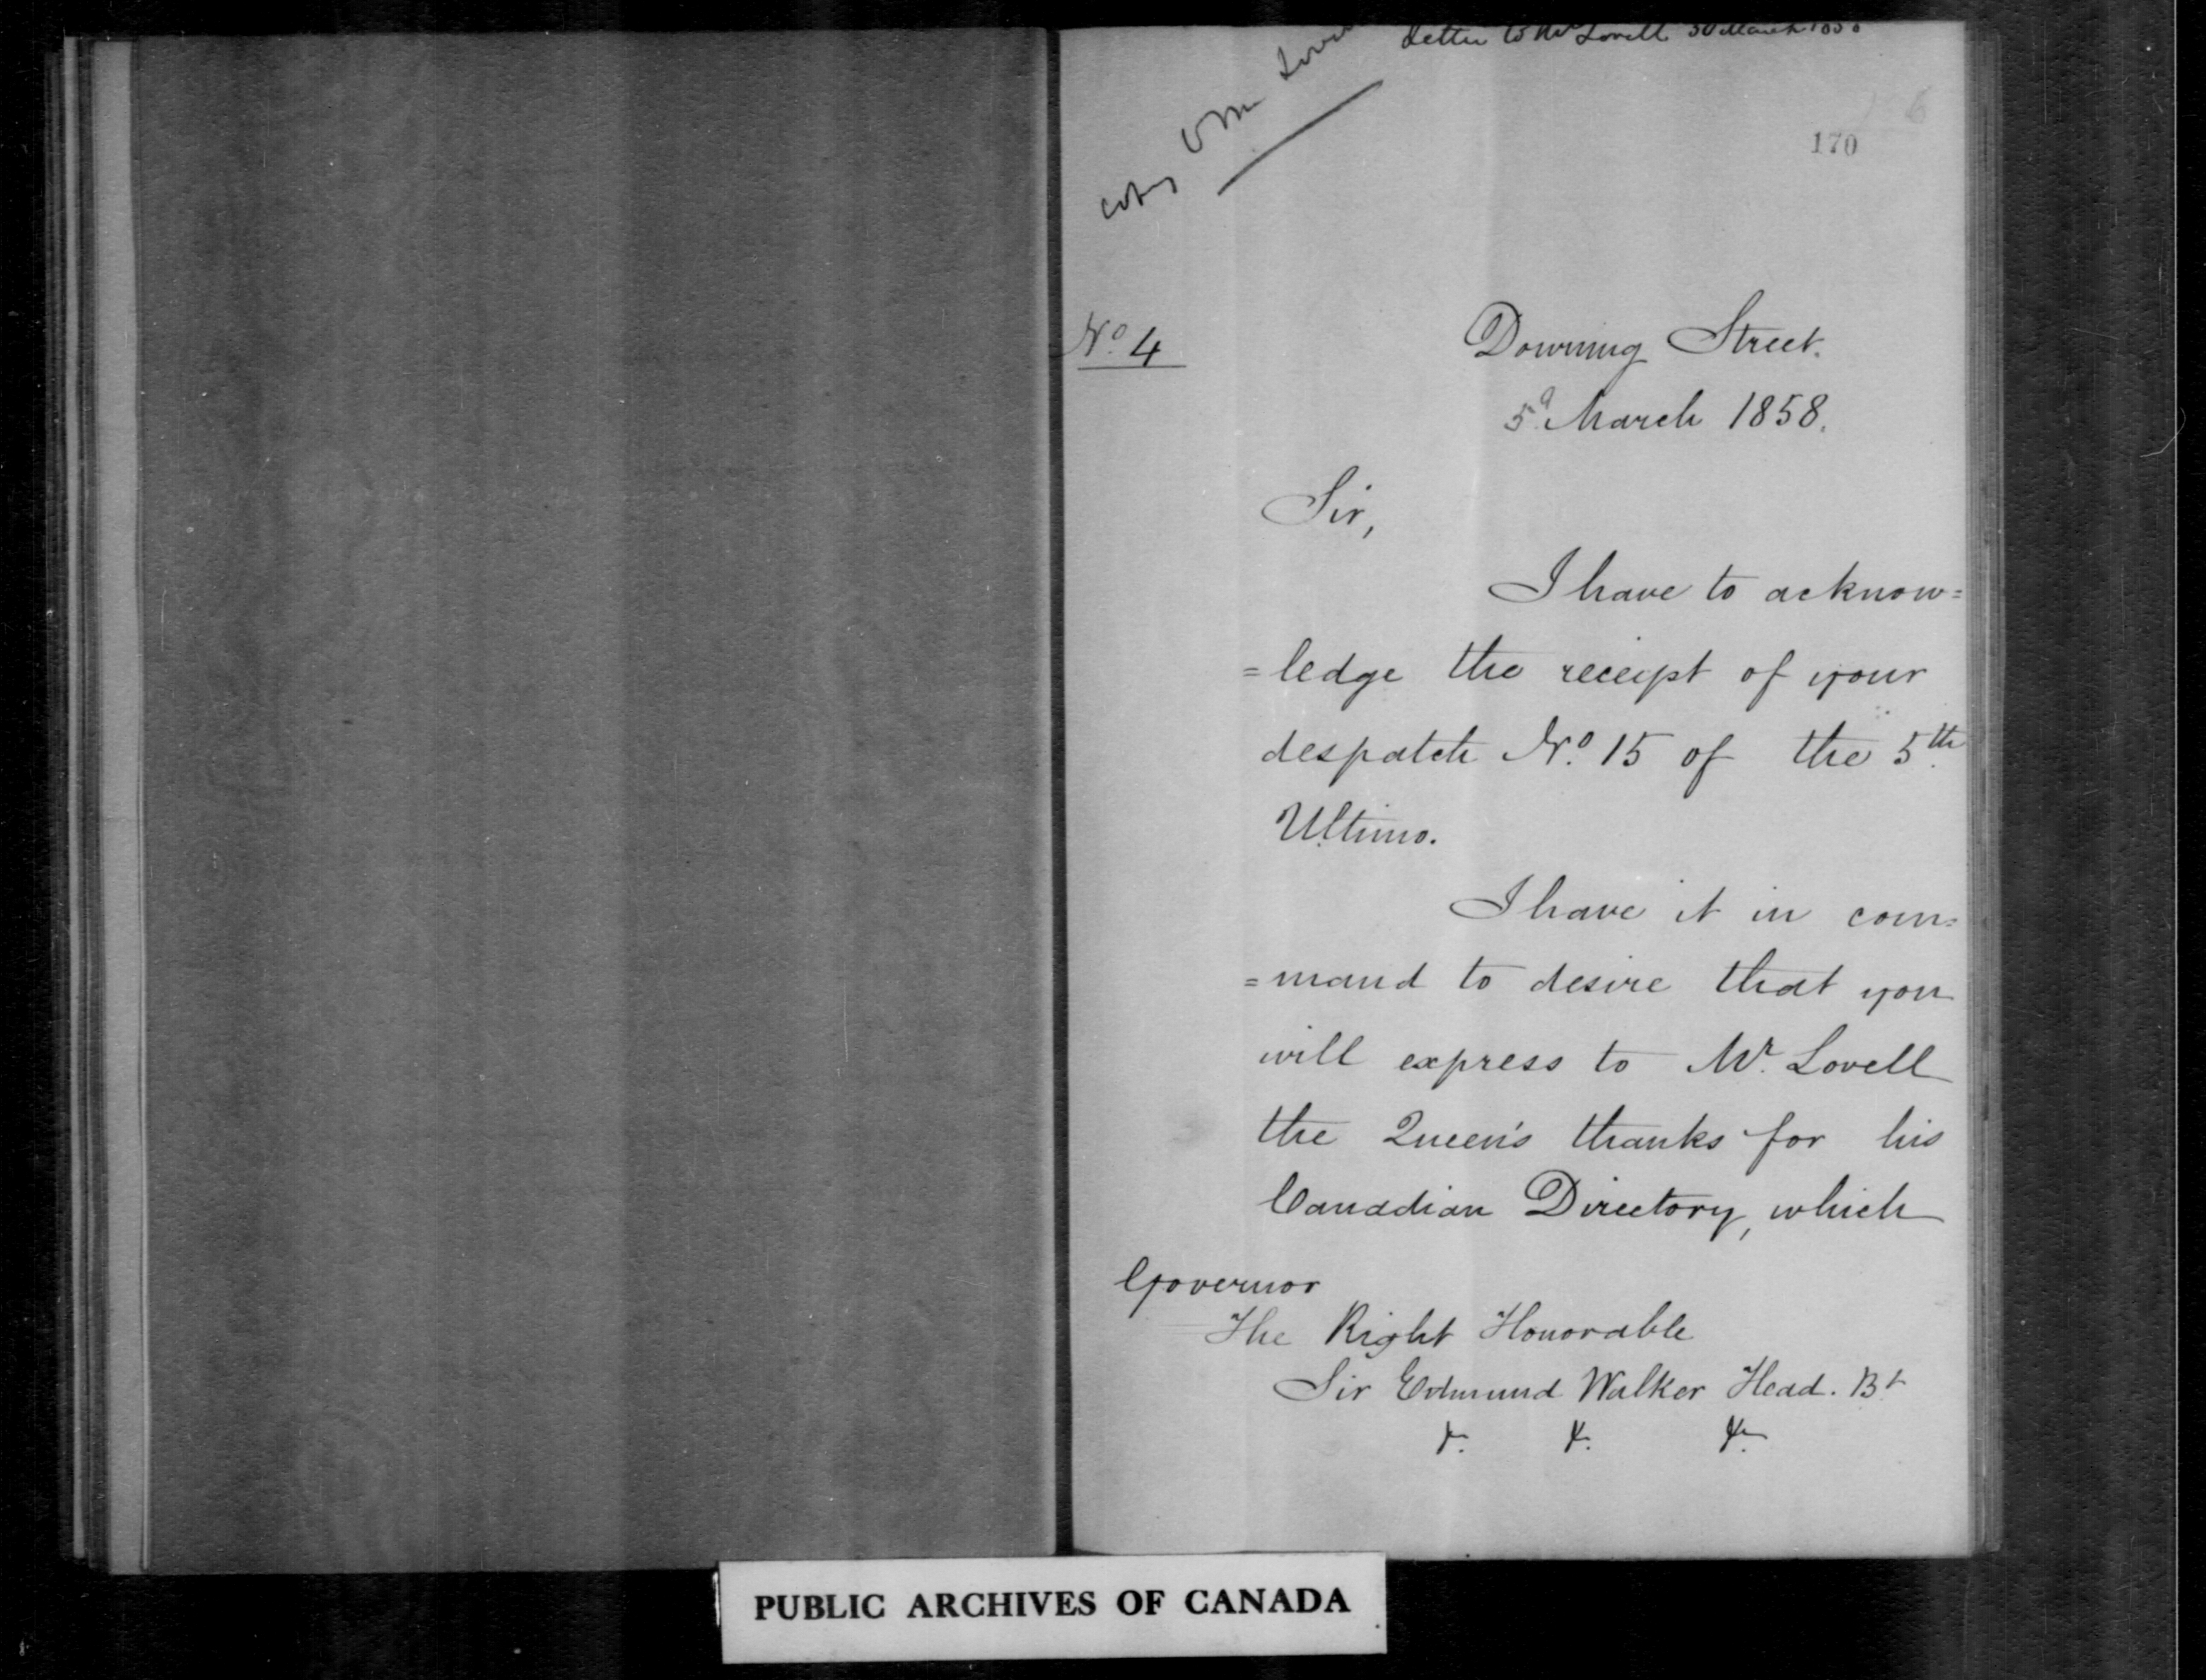 Letter to Mr Lovell 30 March 1858
170
No. 4
Downing Street.
March 1858.
Sir,
I have to acknow=
=ledge the receipt of your
despatch No. 15 of the 5th
Ultimo.
I have it in com=
=mand to desire that you
will express to Mr. Lovell
the Queen's thanks for his
Canadian Directory, which
Governor
The Right Honorable
Sir Edmund Walker Head. Bt
&. &. &.
PUBLIC ARCHIVES OF CANADA